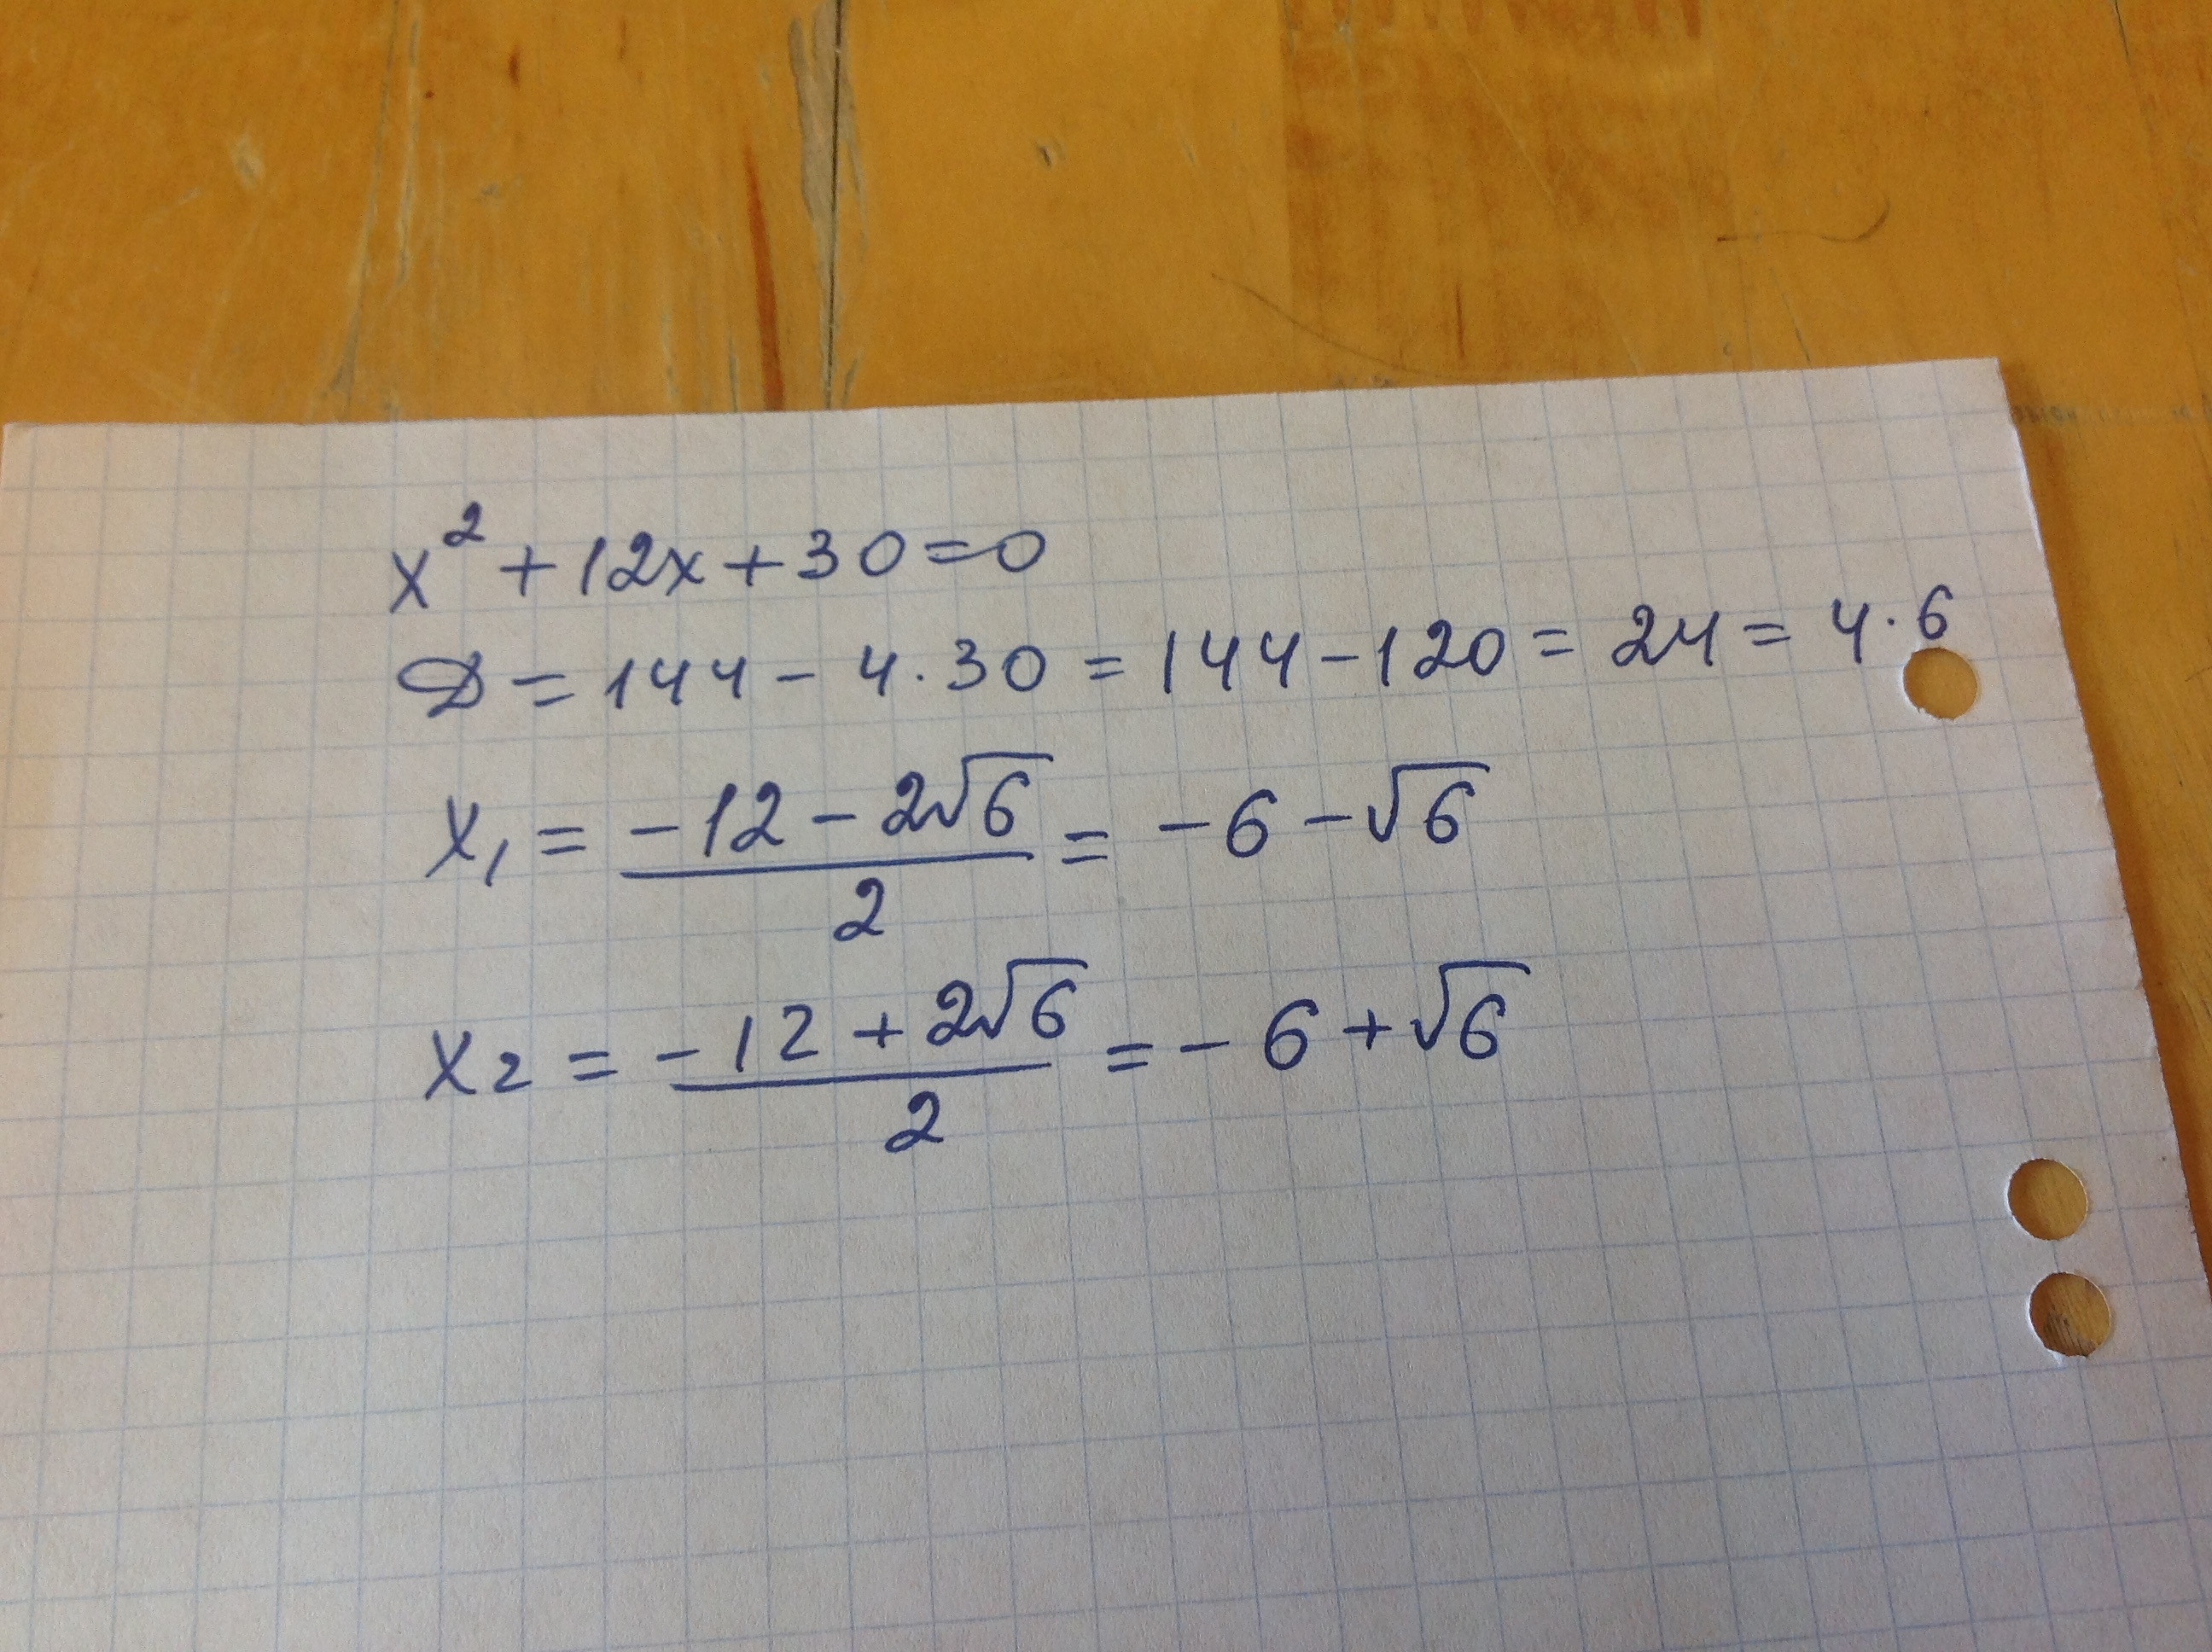 x² + 12x + 30 = 0
D = 144 - 4·30 = 144 - 120 = 24 = 4·6
x₁ = (-12 - 2√6)/2 = -6 - √6
x₂ = (-12 + 2√6)/2 = -6 + √6